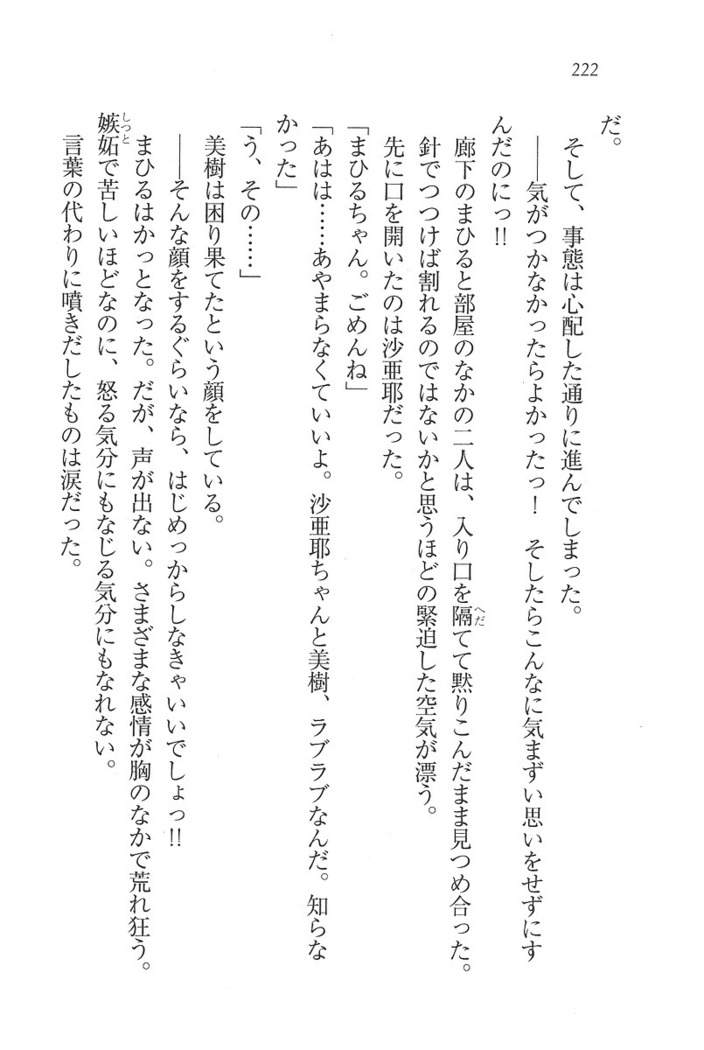 222
だ。
そして、事態は心配した通りに進んでしまった。
――気がつかなかったらよかったっ！　そしたらこんなに気まずい思いをせずにす
んだのにっ!!
廊下のまひると部屋のなかの二人は、入り口を隔てて黙りこんだまま見つめ合った。
へだ
針でつつけば割れるのではないかと思うほどの緊迫した空気が漂う。
先に口を開いたのは沙亜耶だった。
「まひるちゃん。ごめんね」
「あはは……あやまらなくていいよ。沙亜耶ちゃんと美樹、ラブラブなんだ。知らな
かった」
「う、その……」
美樹は困り果てたという顔をしている。
――そんな顔をするぐらいなら、はじめっからしなきゃいいでしょっ!!
まひるはかっとなった。だが、声が出ない。さまざまな感情が胸のなかで荒れ狂う。
嫉妬で苦しいほどなのに、怒る気分にもなじる気分にもなれない。
しつと
言葉の代わりに噴きだしたものは涙だった。